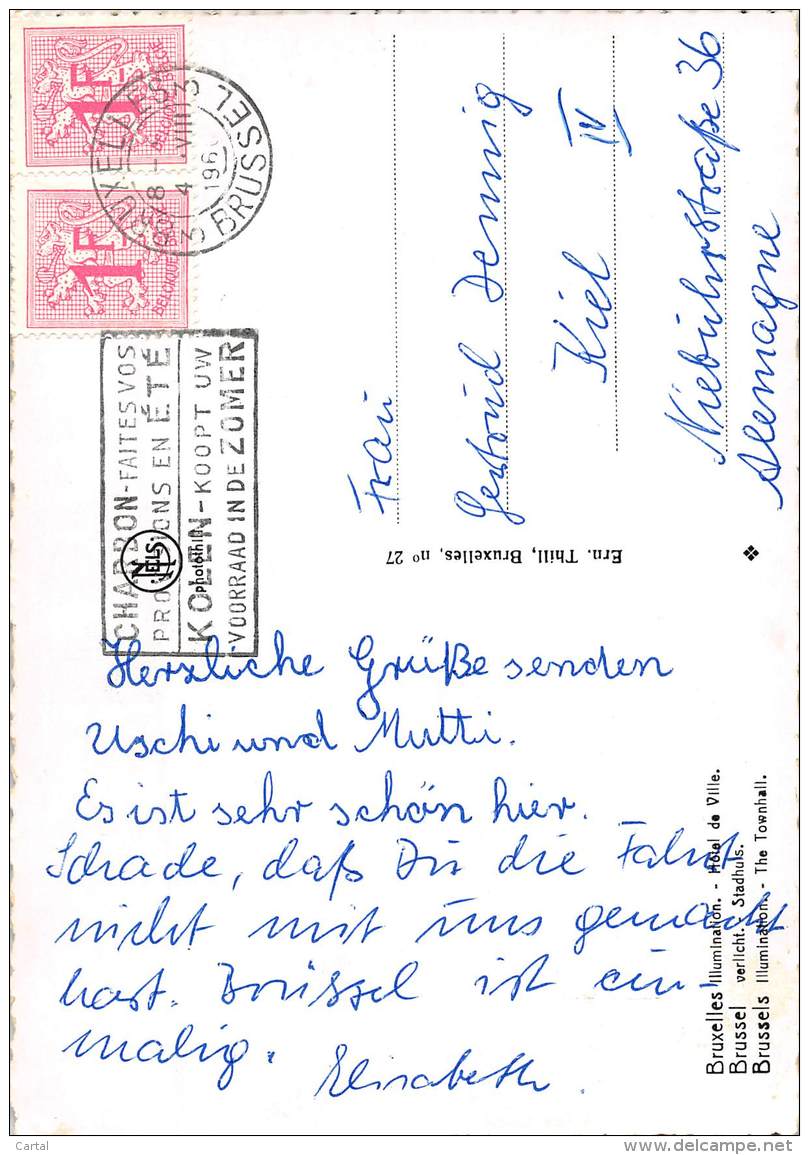 1F
BELGIQUE BELGIE
1F
BELGIQUE
BRUXELLES
BRUSSEL
8-
4 VIII
196
3
3
CHARBON-FAITES VOS
PROVISIONS EN ÉTÉ
KOLEN-KOOPT UW
VOORRAAD IN DE ZOMER
NELS
photothill
Frau
Gertrud Denning
Kiel IV
Niebuhrstraße 36
Alemagne
Ern. Thill, Bruxelles, nº 27
Herzliche Grüße senden
Uschi und Mutti.
Es ist sehr schön hier.
Schade, daß Du die Fahrt
nicht mit uns gemacht
hast. Brüssel ist ein-
malig.
Elisabeth
Bruxelles Illumination. - Hôtel de Ville.
Brussel verlicht. Stadhuis.
Brussels Illumination. - The Townhall.
Cartal
www.delcampe.net